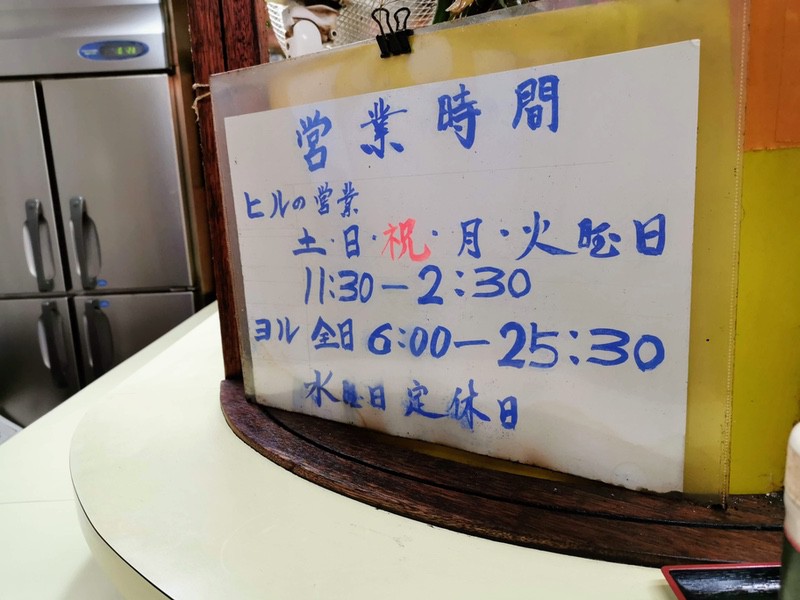 営業時間
ヒルの営業
土・日・祝・月・火曜日
11:30-2:30
ヨル 全日 6:00-25:30
水曜日定休日